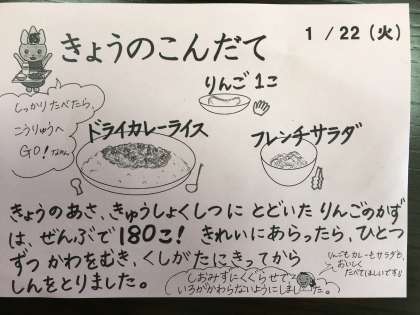 きょうのこんだて
1/22(火)
りんご1こ
しっかりたべたら、
こうりゅうへ
GO!なのん
ドライカレーライス
フレンチサラダ
きょうのあさ、きゅうしょくしつに とどいた りんごのかず
は、ぜんぶで180こ! きれいにあらったら、ひとつ
ずつ かわをむき、くしがたにきってから
しんをとりました。
しおみずにくぐらせて
いろがかわらないようにしました。
りんごもカレーもサラダも、
おいしく
たべてほしいです!!